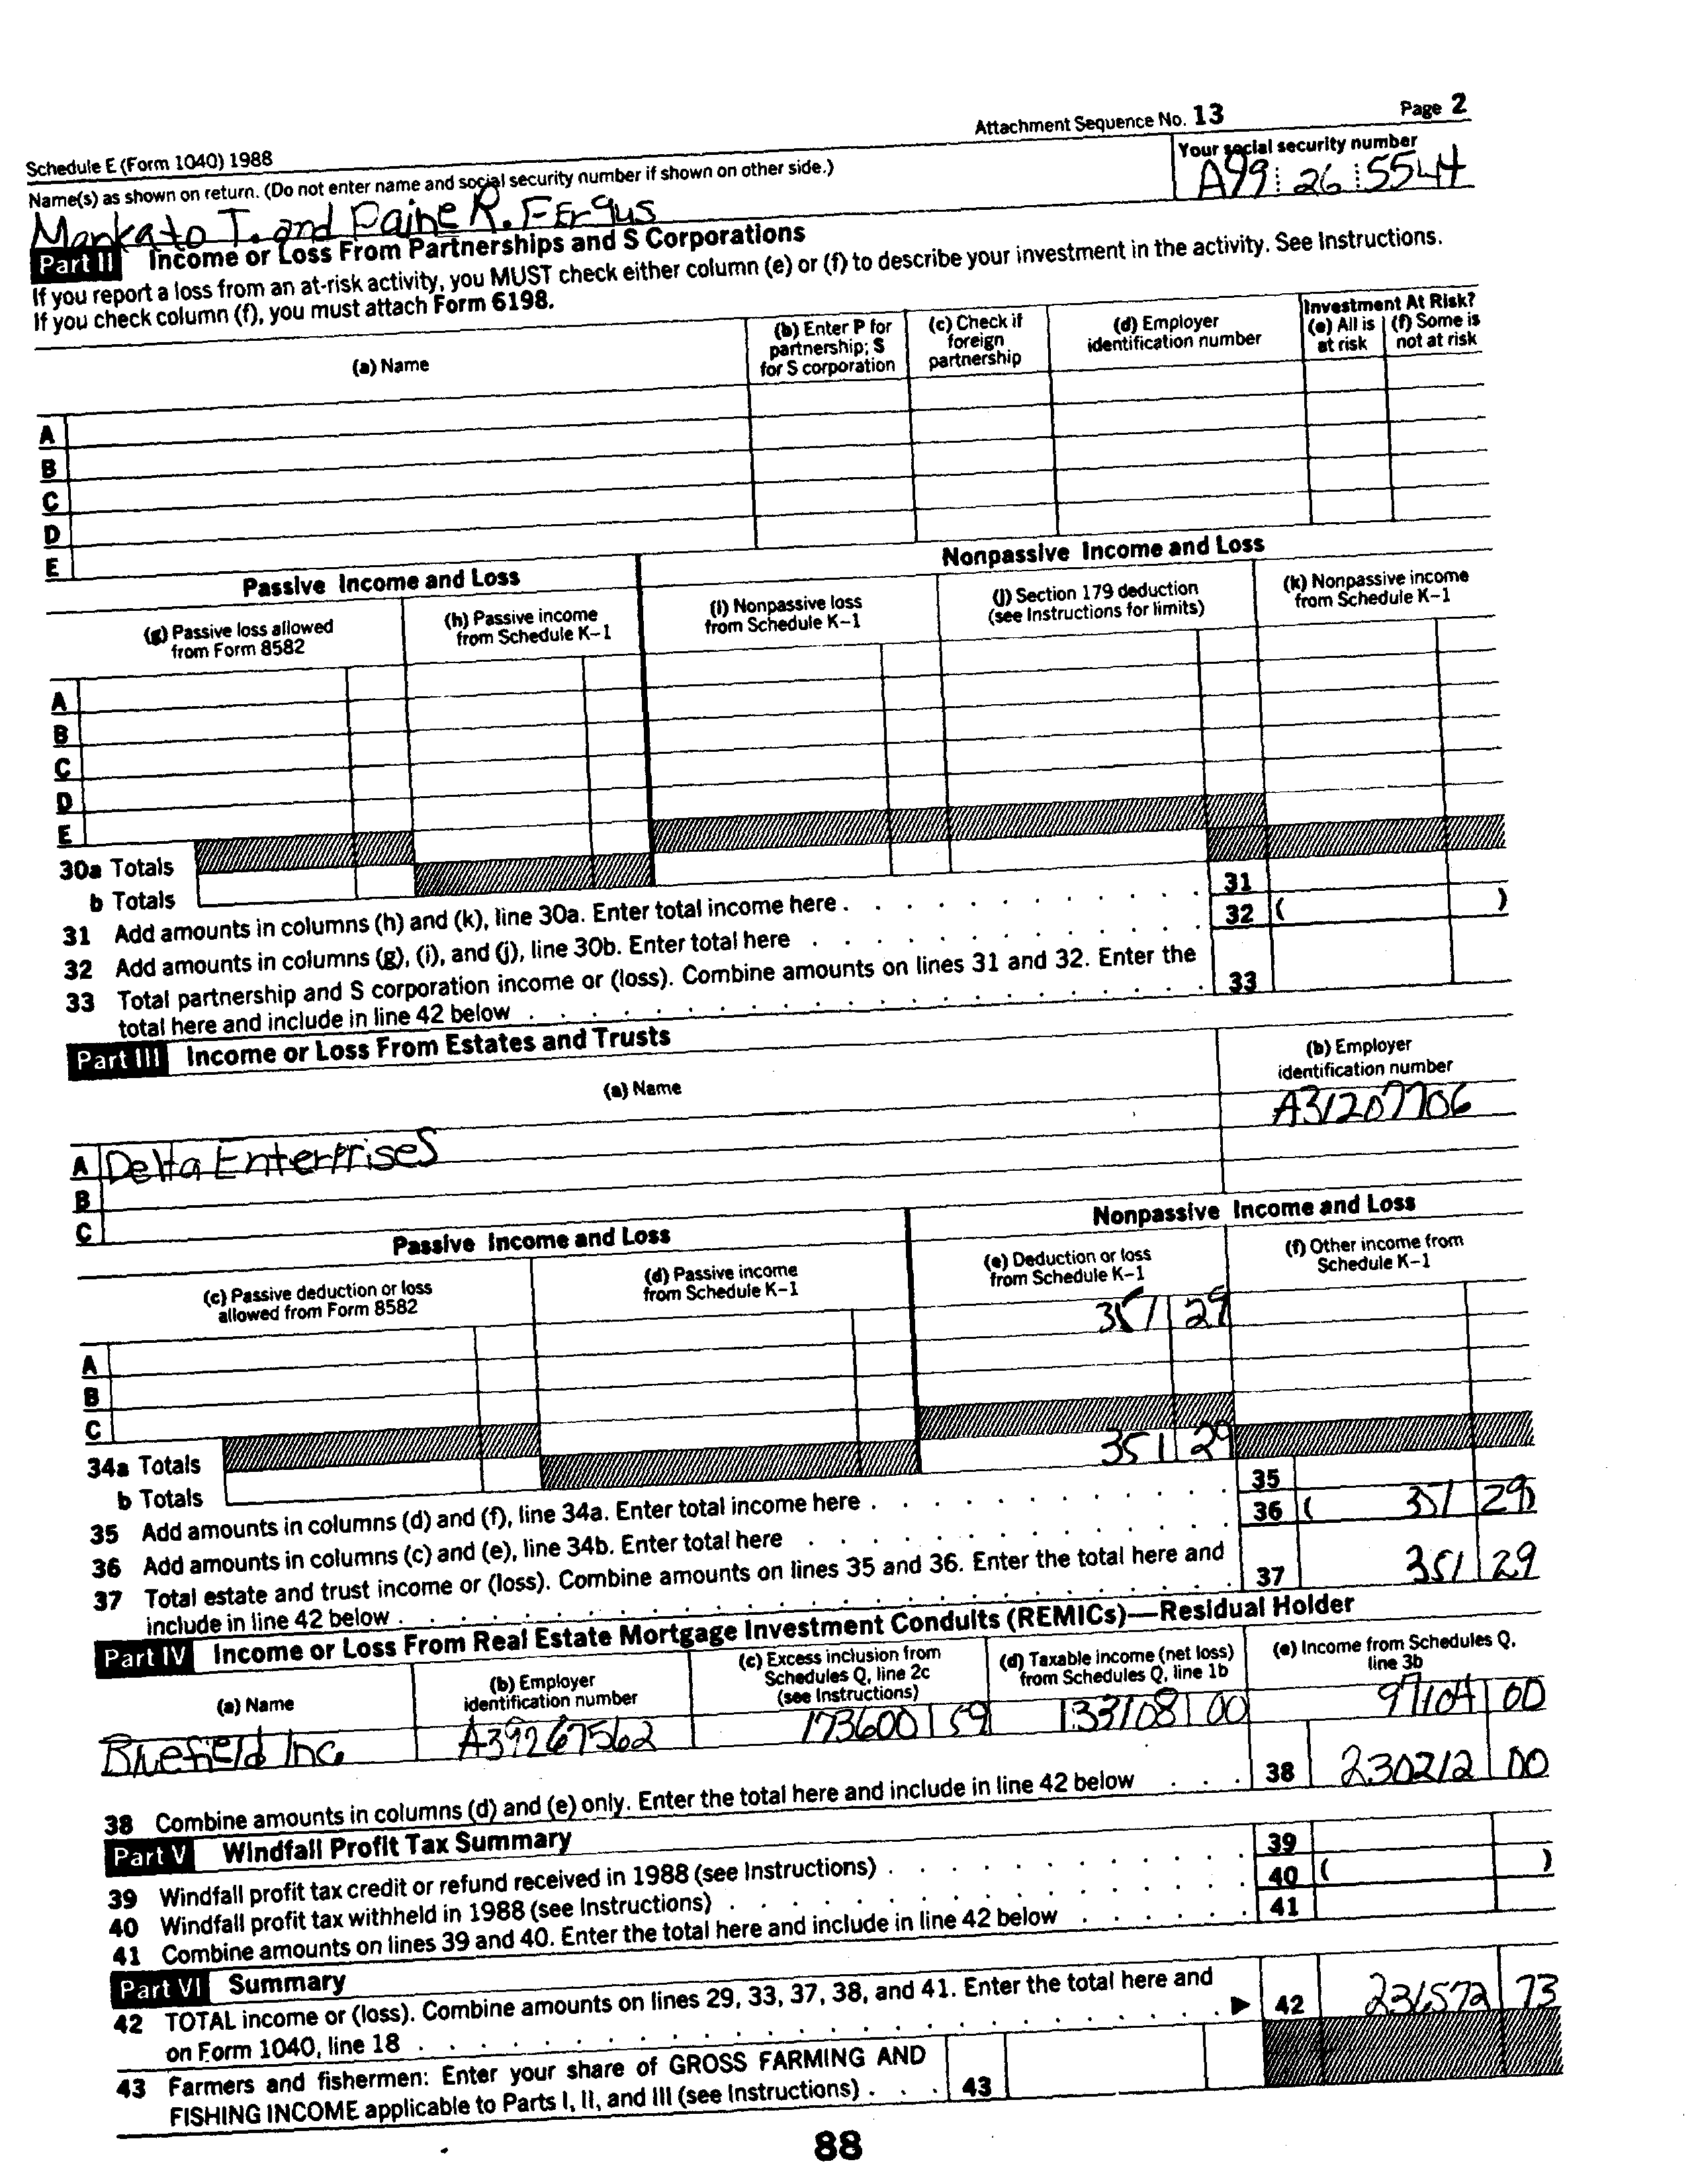 Attachment Sequence No. 13 Page 2
Schedule E (Form 1040) 1988
Name(s) as shown on return. (Do not enter name and social security number if shown on other side.) Your social security number
Mankato T. and Paine R. Fergus A99 26 5544
Part II Income or Loss From Partnerships and S Corporations
If you report a loss from an at-risk activity, you MUST check either column (e) or (f) to describe your investment in the activity. See Instructions.
If you check column (f), you must attach Form 6198.
(a) Name
(b) Enter P for partnership; S for S corporation
(c) Check if foreign partnership
(d) Employer identification number
Investment At Risk?
(e) All is at risk
(f) Some is not at risk
A
B
C
D
E
Passive Income and Loss
Nonpassive Income and Loss
(g) Passive loss allowed from Form 8582
(h) Passive income from Schedule K-1
(i) Nonpassive loss from Schedule K-1
(j) Section 179 deduction (see Instructions for limits)
(k) Nonpassive income from Schedule K-1
A
B
C
D
E
30a Totals
b Totals
31 Add amounts in columns (h) and (k), line 30a. Enter total income here . . . 31
32 Add amounts in columns (g), (i), and (j), line 30b. Enter total here . . . 32 ( )
33 Total partnership and S corporation income or (loss). Combine amounts on lines 31 and 32. Enter the
total here and include in line 42 below . . . 33
Part III Income or Loss From Estates and Trusts
(a) Name
(b) Employer identification number
A Delta Enterprises A31207706
B
C
Passive Income and Loss
Nonpassive Income and Loss
(c) Passive deduction or loss allowed from Form 8582
(d) Passive income from Schedule K-1
(e) Deduction or loss from Schedule K-1
(f) Other income from Schedule K-1
A 351 29
B
C
34a Totals
b Totals 351 29
35 Add amounts in columns (d) and (f), line 34a. Enter total income here . . . 35
36 Add amounts in columns (c) and (e), line 34b. Enter total here . . . 36 ( 351 29)
37 Total estate and trust income or (loss). Combine amounts on lines 35 and 36. Enter the total here and
include in line 42 below . . . 37 351 29
Part IV Income or Loss From Real Estate Mortgage Investment Conduits (REMICs)—Residual Holder
(a) Name
(b) Employer identification number
(c) Excess inclusion from Schedules Q, line 2c (see Instructions)
(d) Taxable income (net loss) from Schedules Q, line 1b
(e) Income from Schedules Q, line 3b
Bluefield Inc A39267562 173600 59 133108 00 97104 00
38 Combine amounts in columns (d) and (e) only. Enter the total here and include in line 42 below . . . 38 230212 00
Part V Windfall Profit Tax Summary
39 Windfall profit tax credit or refund received in 1988 (see Instructions) . . . 39
40 Windfall profit tax withheld in 1988 (see Instructions) . . . 40 ( )
41 Combine amounts on lines 39 and 40. Enter the total here and include in line 42 below . . . 41
Part VI Summary
42 TOTAL income or (loss). Combine amounts on lines 29, 33, 37, 38, and 41. Enter the total here and
on Form 1040, line 18 . . . ▶ 42 231572 73
43 Farmers and fishermen: Enter your share of GROSS FARMING AND
FISHING INCOME applicable to Parts I, II, and III (see Instructions) . . . 43
88